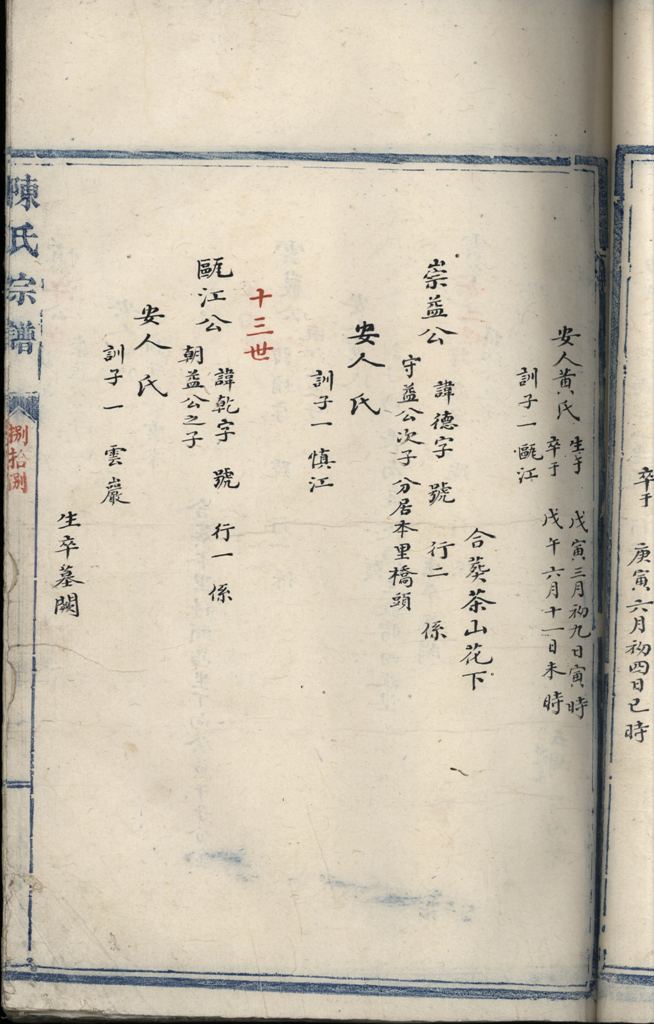 卒于 庚寅六月初四日巳時
安人黄氏 生于 戊寅三月初九日寅時
卒于 戊午六月十一日未時
訓子一甌江
合葬茶山花下
崇益公 諱德字 號 行二 係
守益公次子分居本里橋頭
安人氏
訓子一慎江
十三世
甌江公 諱乾字 號 行一 係
朝益公之子
安人氏
訓子一雲巖
生卒墓闕
陳氏宗譜
捌拾捌